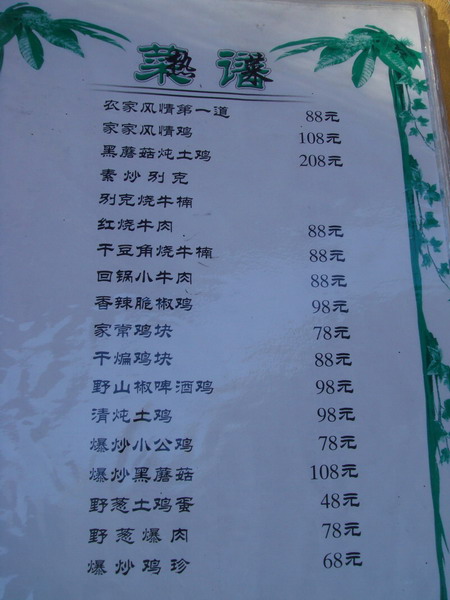 菜谱
热
农家风情第一道 88元
家家风情鸡 108元
黑蘑菇炖土鸡 208元
素炒别克
别克烧牛楠
红烧牛肉 88元
干豆角烧牛楠 88元
回锅小牛肉 88元
香辣脆椒鸡 98元
家常鸡块 78元
干煸鸡块 88元
野山椒啤酒鸡 98元
清炖土鸡 98元
爆炒小公鸡 78元
爆炒黑蘑菇 108元
野葱土鸡蛋 48元
野葱爆肉 78元
爆炒鸡珍 68元